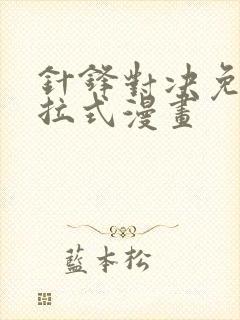 針鋒對决免
拉式漫畫
藍本松